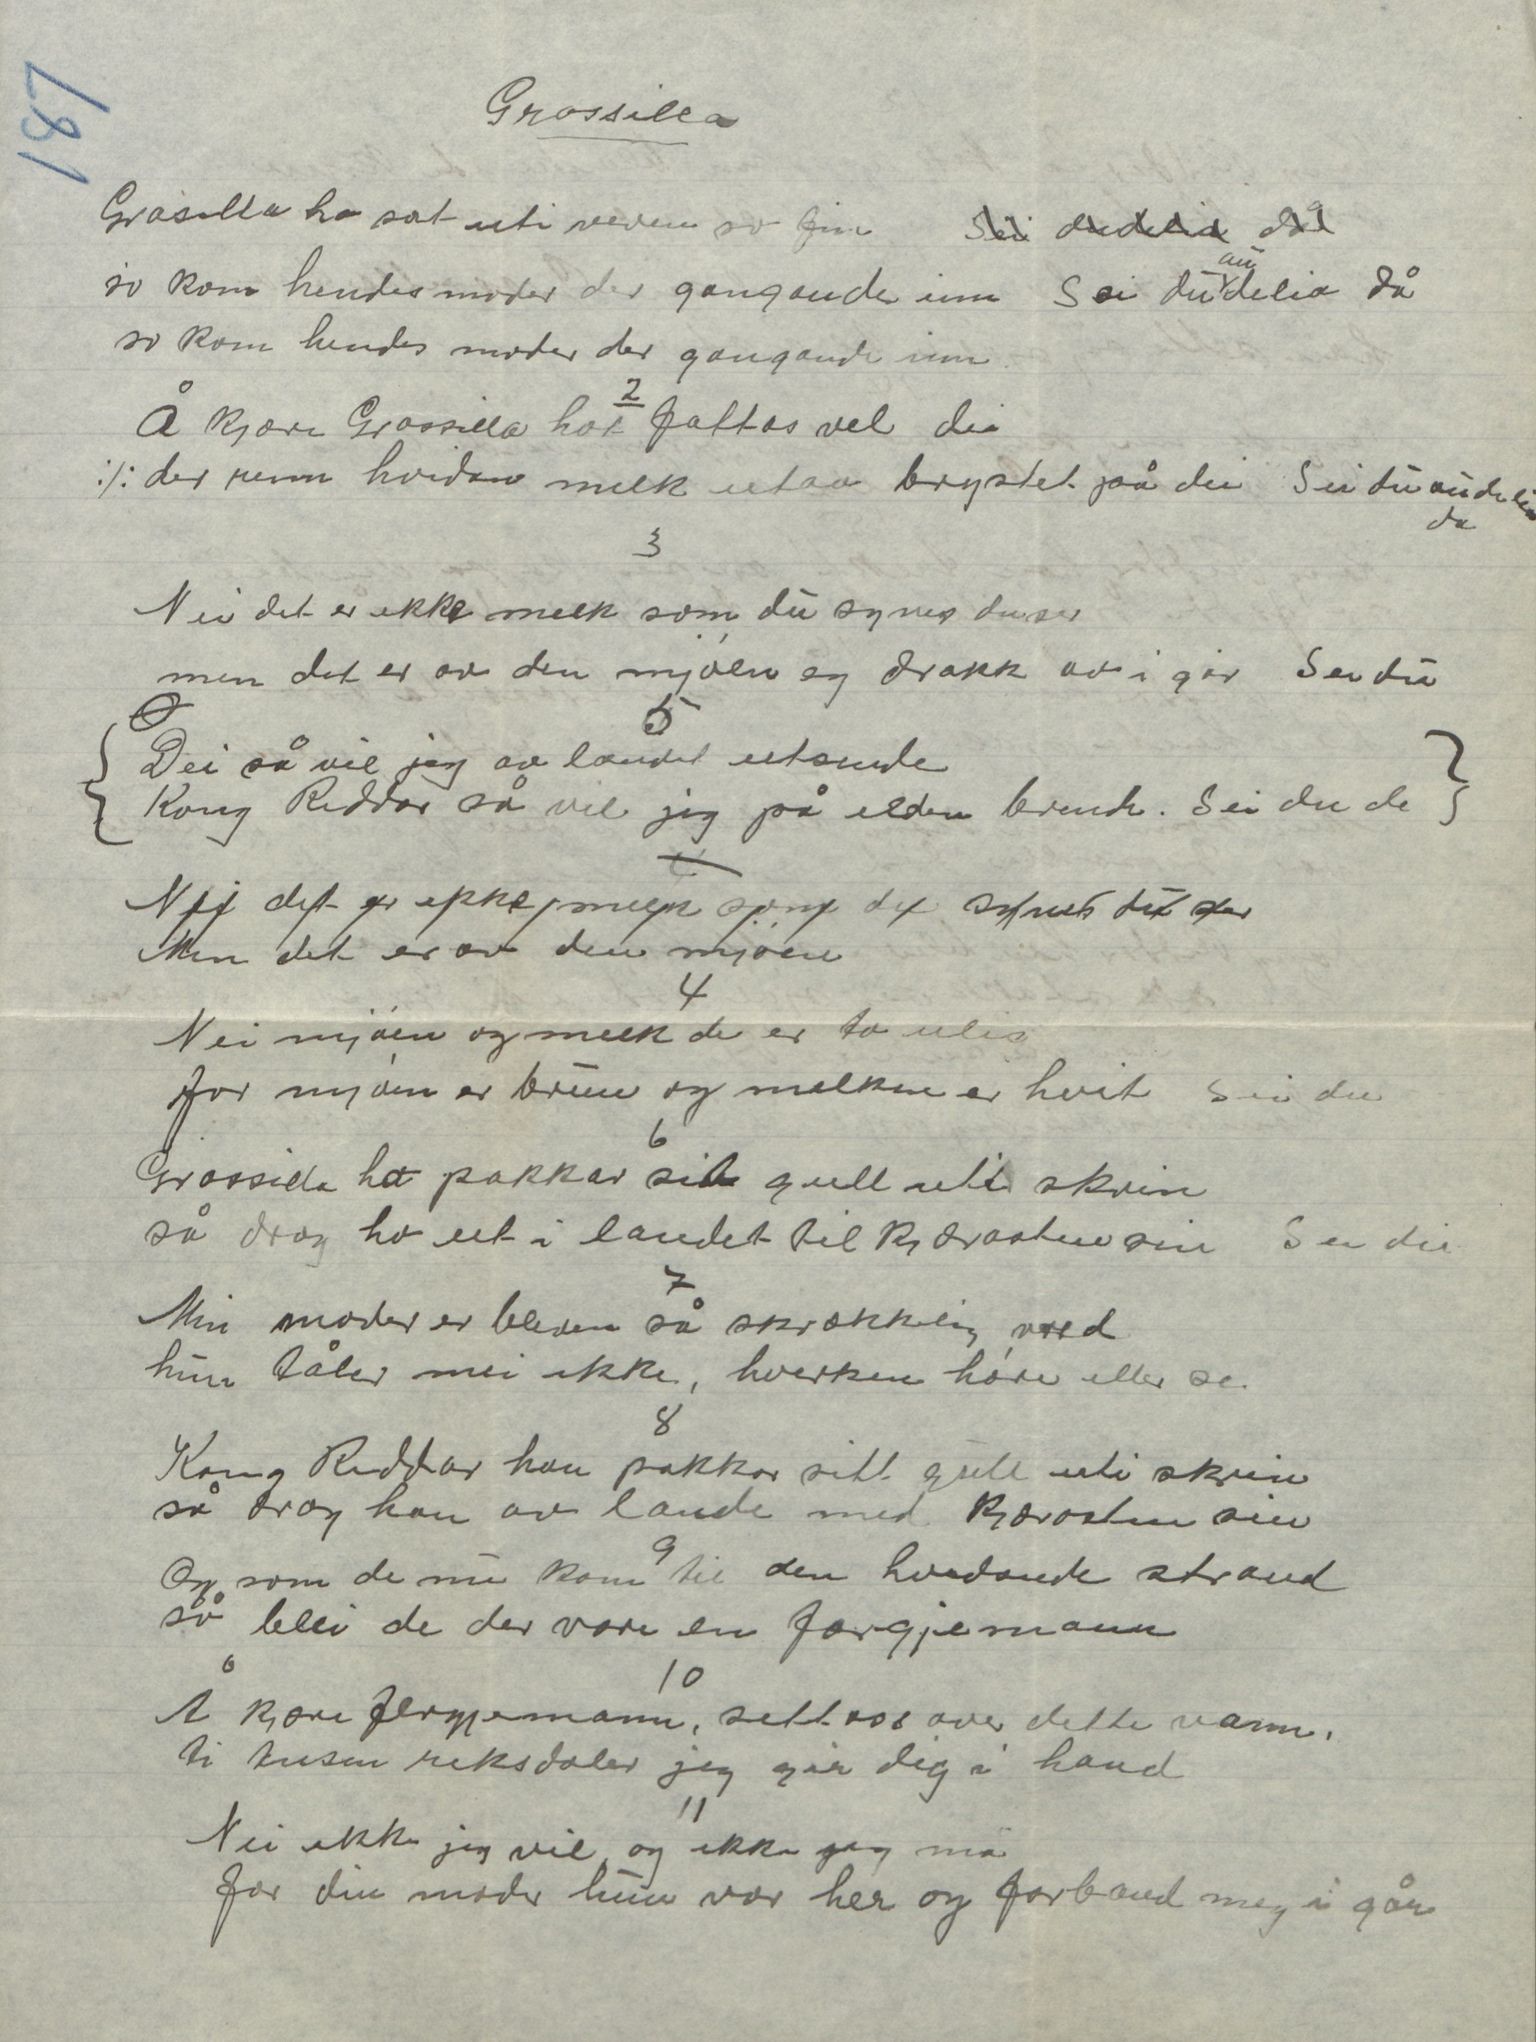 187
Grossilla
Grosilla ho sat uti veven so fin Sei dudelia då
so kom hendes moder der gangande inn Sei du audelia då
so kom hendes moder der gangande inn
2
Å kjære Grossilla hot fattas vel dei
:/: der renn hvidan melk utav brystet på dei Sei du audelia
da
3
Nei det er ikke melk som du synes du ser
men det er av den mjóen eg drakk av i går Sei du
5
Dei så vil jeg av landet utsende
Kong Riddar så vil jeg på elden brende. Sei du de
Nei det er ikke melk som du synes du ser
Men det er av den mjóen
4
Nei mjóen og melk de er to ulig
for mjóen er brun og melken er hvit Sei du
6
Grossilla ho pakkar sit gull uti skrin
så drog ho ut i landet til kjærasten sin Sei du
7
Min moder er bleven så skrækkelig vred
hun tåler mei ikke, hverken høre eller se
8
Kong Riddar han pakkar sitt gull uti skrin
så drog han av lande med kjærasten sin
9
Og som de nu kom til den hvidande strand
så blei de der vare en færgjemann
10
Å kjære fergjemann, sett oss over dette vann,
ti tusen riksdaler jeg gir dig i hand
11
Nei ikke jeg vil og ikke jeg må
for din moder hun var her og forband meg i går